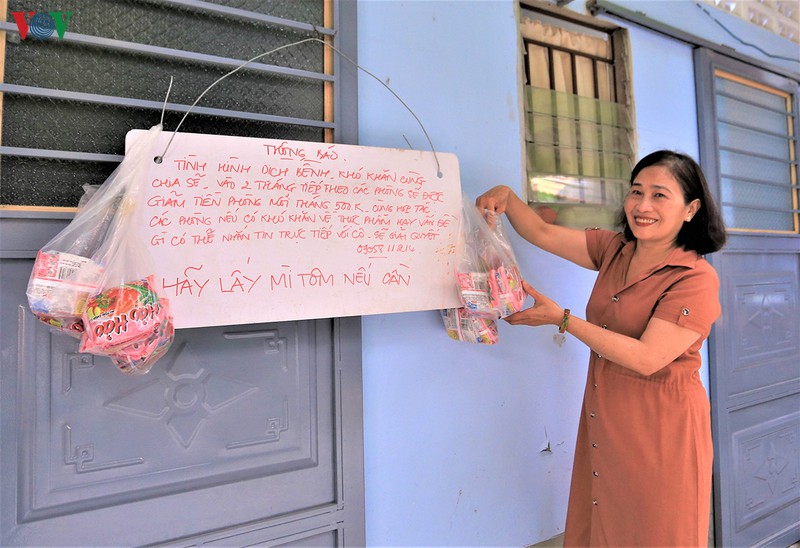 VOV
THÔNG BÁO.
TÌNH HÌNH DỊCH BỆNH - KHÓ KHĂN CÙNG
CHIA SẺ - VÀO 2 THÁNG TIẾP THEO CÁC PHÒNG SẼ ĐƯỢC
GIẢM TIỀN PHÒNG MỖI THÁNG 500K - CÙNG HỢP TÁC,
CÁC PHÒNG NẾU CÓ KHÓ KHĂN VỀ THỰC PHẨM HAY VẤN ĐỀ
GÌ CÓ THỂ NHẮN TIN TRỰC TIẾP VỚI CÔ - SẼ GIẢI QUYẾT
HÃY LẤY MÌ TÔM NẾU CẦN
Hảo Hảo